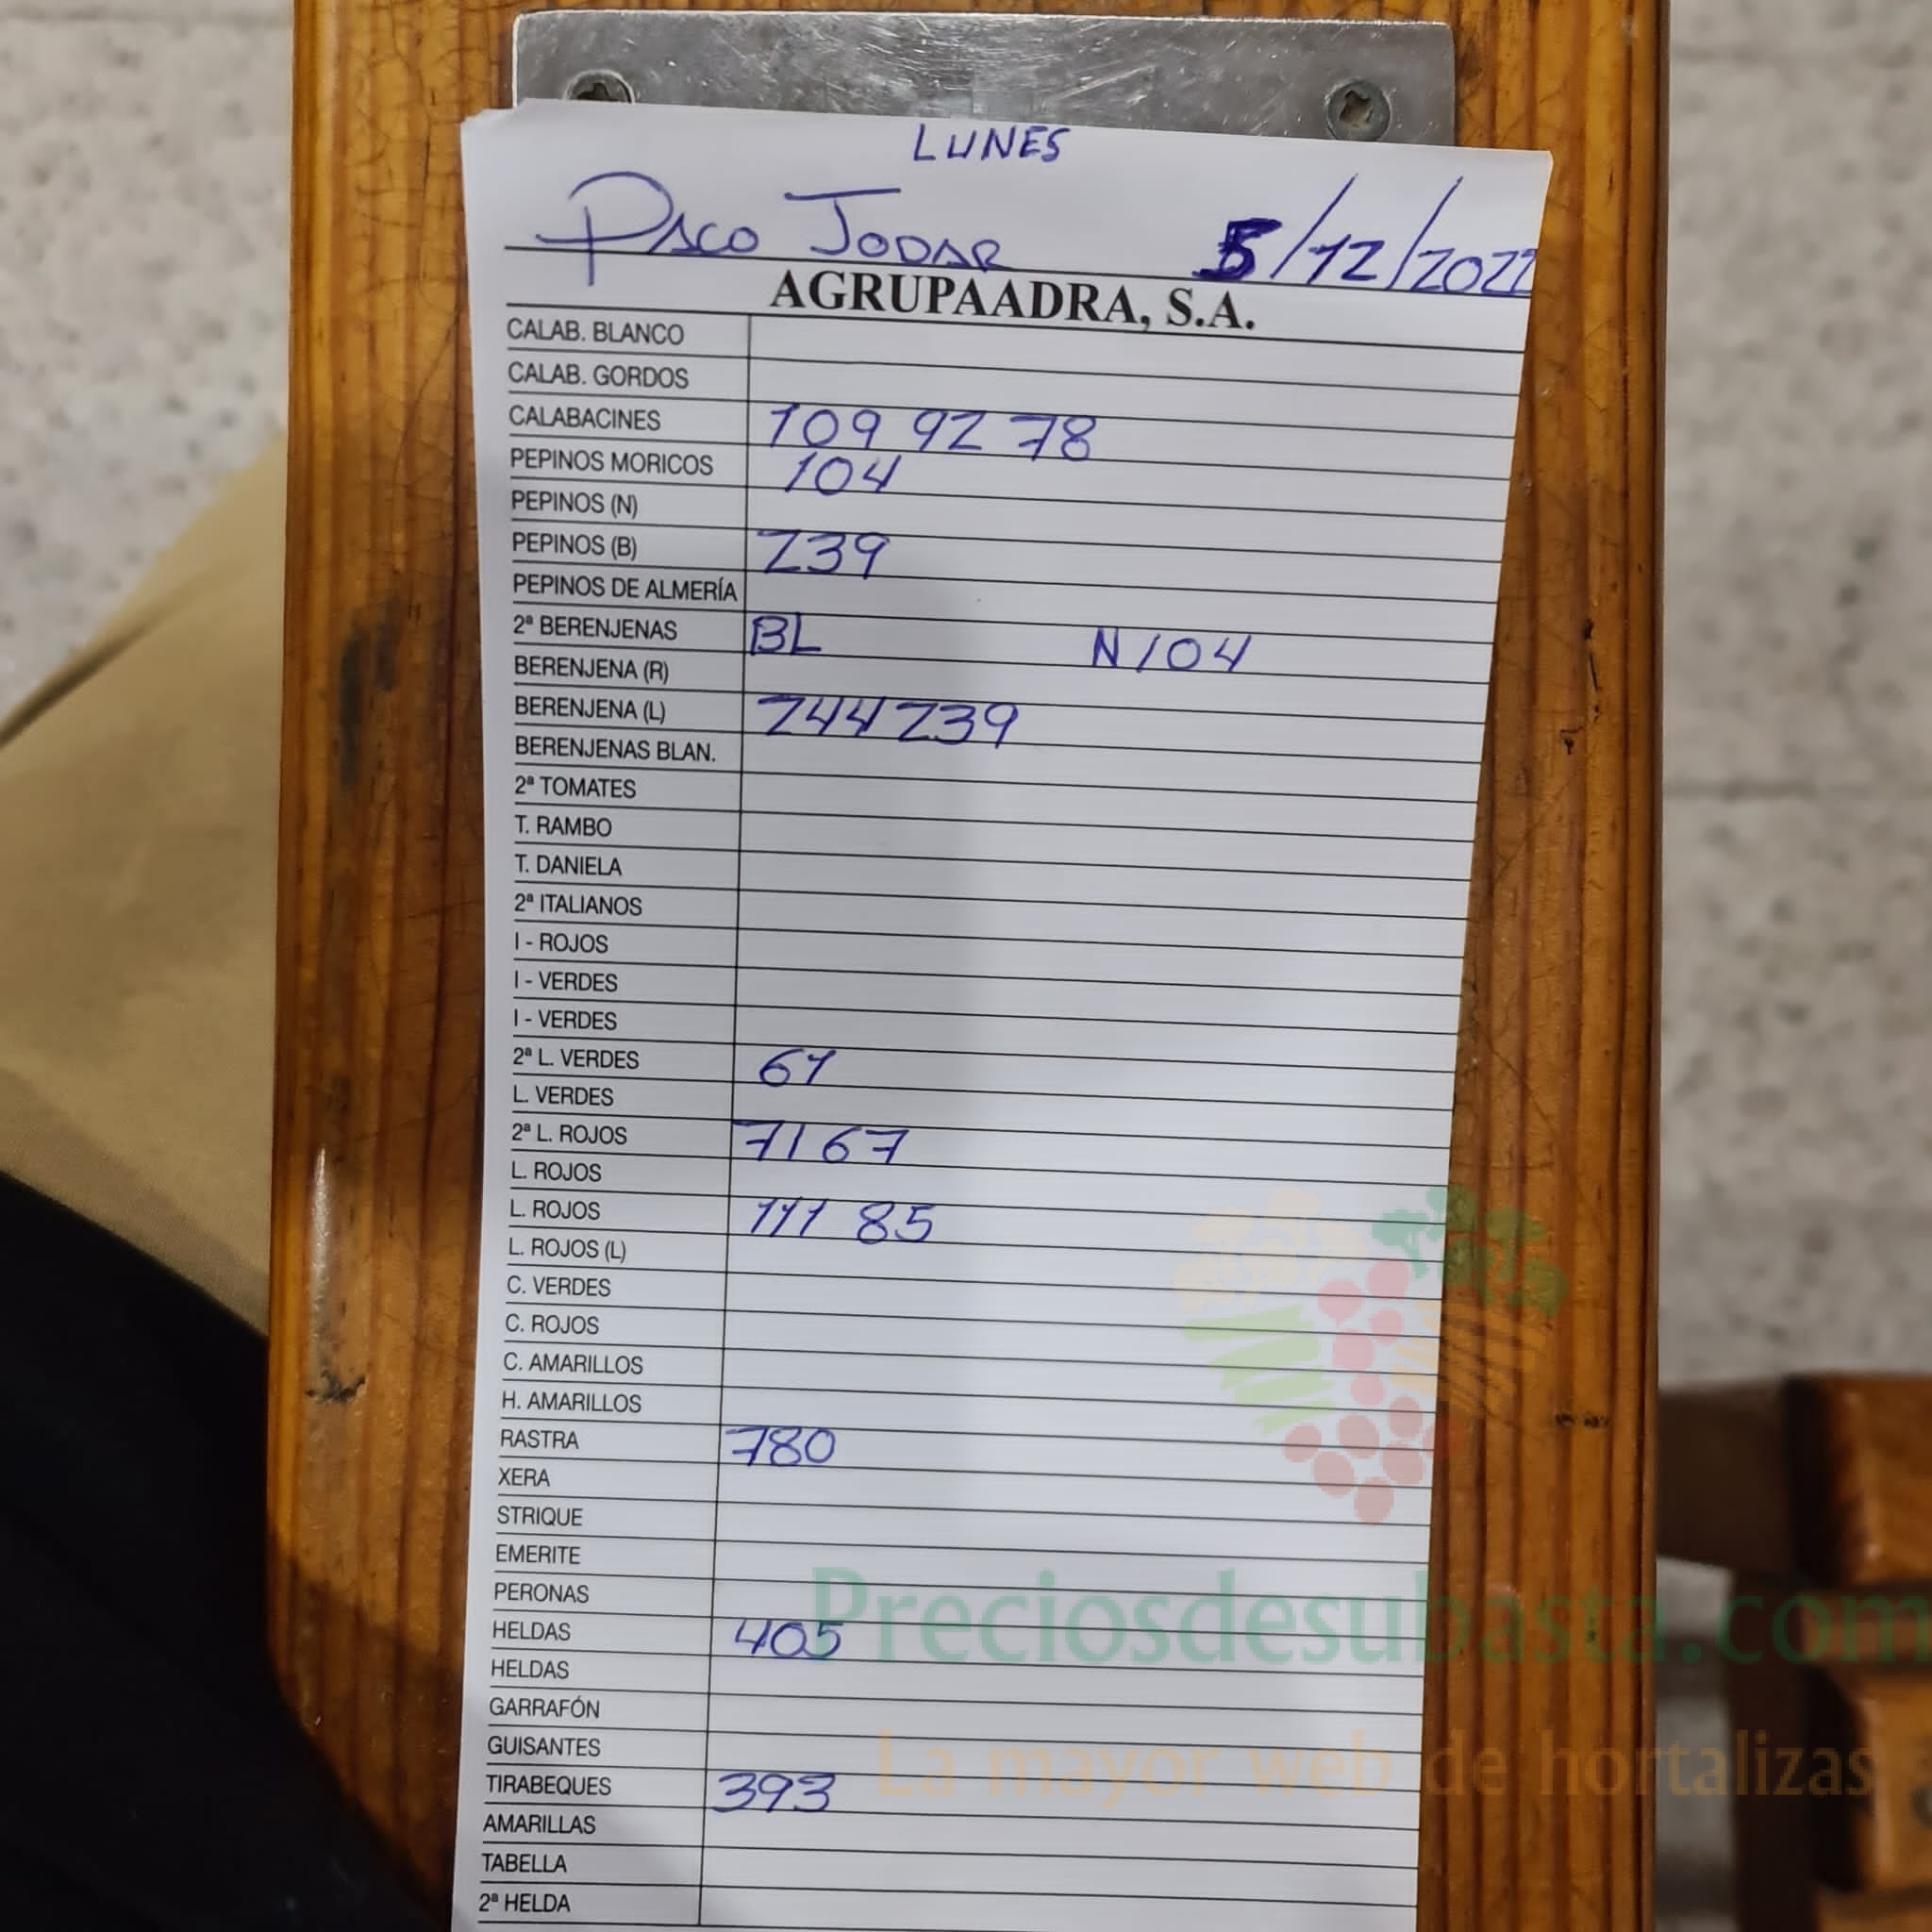 LUNES
PACO JODAR 5/12/2022
AGRUPAADRA, S.A.
CALAB. BLANCO
CALAB. GORDOS
CALABACINES 109 92 78
PEPINOS MORICOS 104
PEPINOS (N)
PEPINOS (B) 239
PEPINOS DE ALMERÍA
2ª BERENJENAS BL N 104
BERENJENA (R)
BERENJENA (L) 244 239
BERENJENAS BLAN.
2ª TOMATES
T. RAMBO
T. DANIELA
2ª ITALIANOS
I - ROJOS
I - VERDES
I - VERDES
2ª L. VERDES 61
L. VERDES
2ª L. ROJOS 71 67
L. ROJOS
L. ROJOS 111 85
L. ROJOS (L)
C. VERDES
C. ROJOS
C. AMARILLOS
H. AMARILLOS
RASTRA 780
XERA
STRIQUE
EMERITE
PERONAS
HELDAS 405
HELDAS
GARRAFÓN
GUISANTES
TIRABEQUES 393
AMARILLAS
TABELLA
2ª HELDA
Preciosdesubasta.com
La mayor web de hortalizas